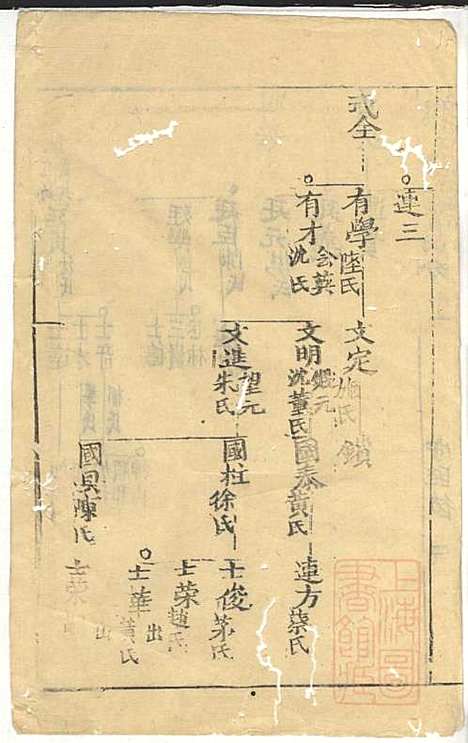 連三
式全
有學 陸氏
有才 會英 沈氏
文定 施氏 鎖
文明 沈氏 董氏
文進 望元 朱氏
國泰 黄氏
國柱 徐氏
國具 陳氏
連方 蔡氏
士俊 茅氏
士荣 趙氏
士華 出 黄氏
士荣 出
上海圖書館藏